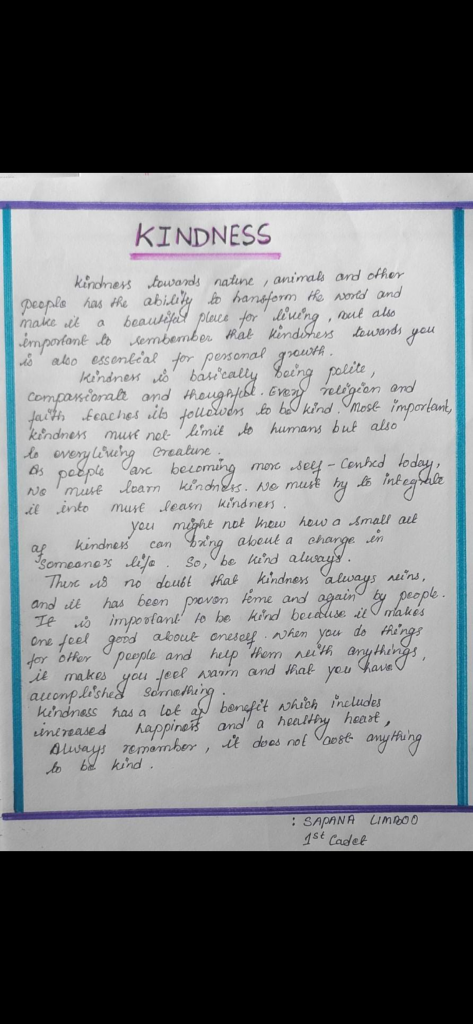 KINDNESS
Kindness towards nature, animals and other
people has the ability to transform the world and
make it a beautiful place for living, but also
important to rembember that kindness towards you
is also essential for personal growth.
Kindness is basically being polite,
compassionate and thoughtful. Every religion and
faith teaches its followers to be kind. Most important,
kindness must not limit to humans but also
to every living creature.
As people are becoming more self-centred today,
we must learn kindness. We must try to integrate
it into must learn kindness.
you might not know how a small act
of kindness can bring about a change in
someone's life. So, be kind always.
There is no doubt that kindness always wins,
and it has been proven time and again by people.
It is important to be kind because it makes
one feel good about oneself. When you do things
for other people and help them with anythings,
it makes you feel warm and that you have
accomplished something.
Kindness has a lot of benefit which includes
increased happiness and a healthy heart,
Always remember, it does not cost anything
to be kind.
: SAPANA LIMBOO
1st Cadet